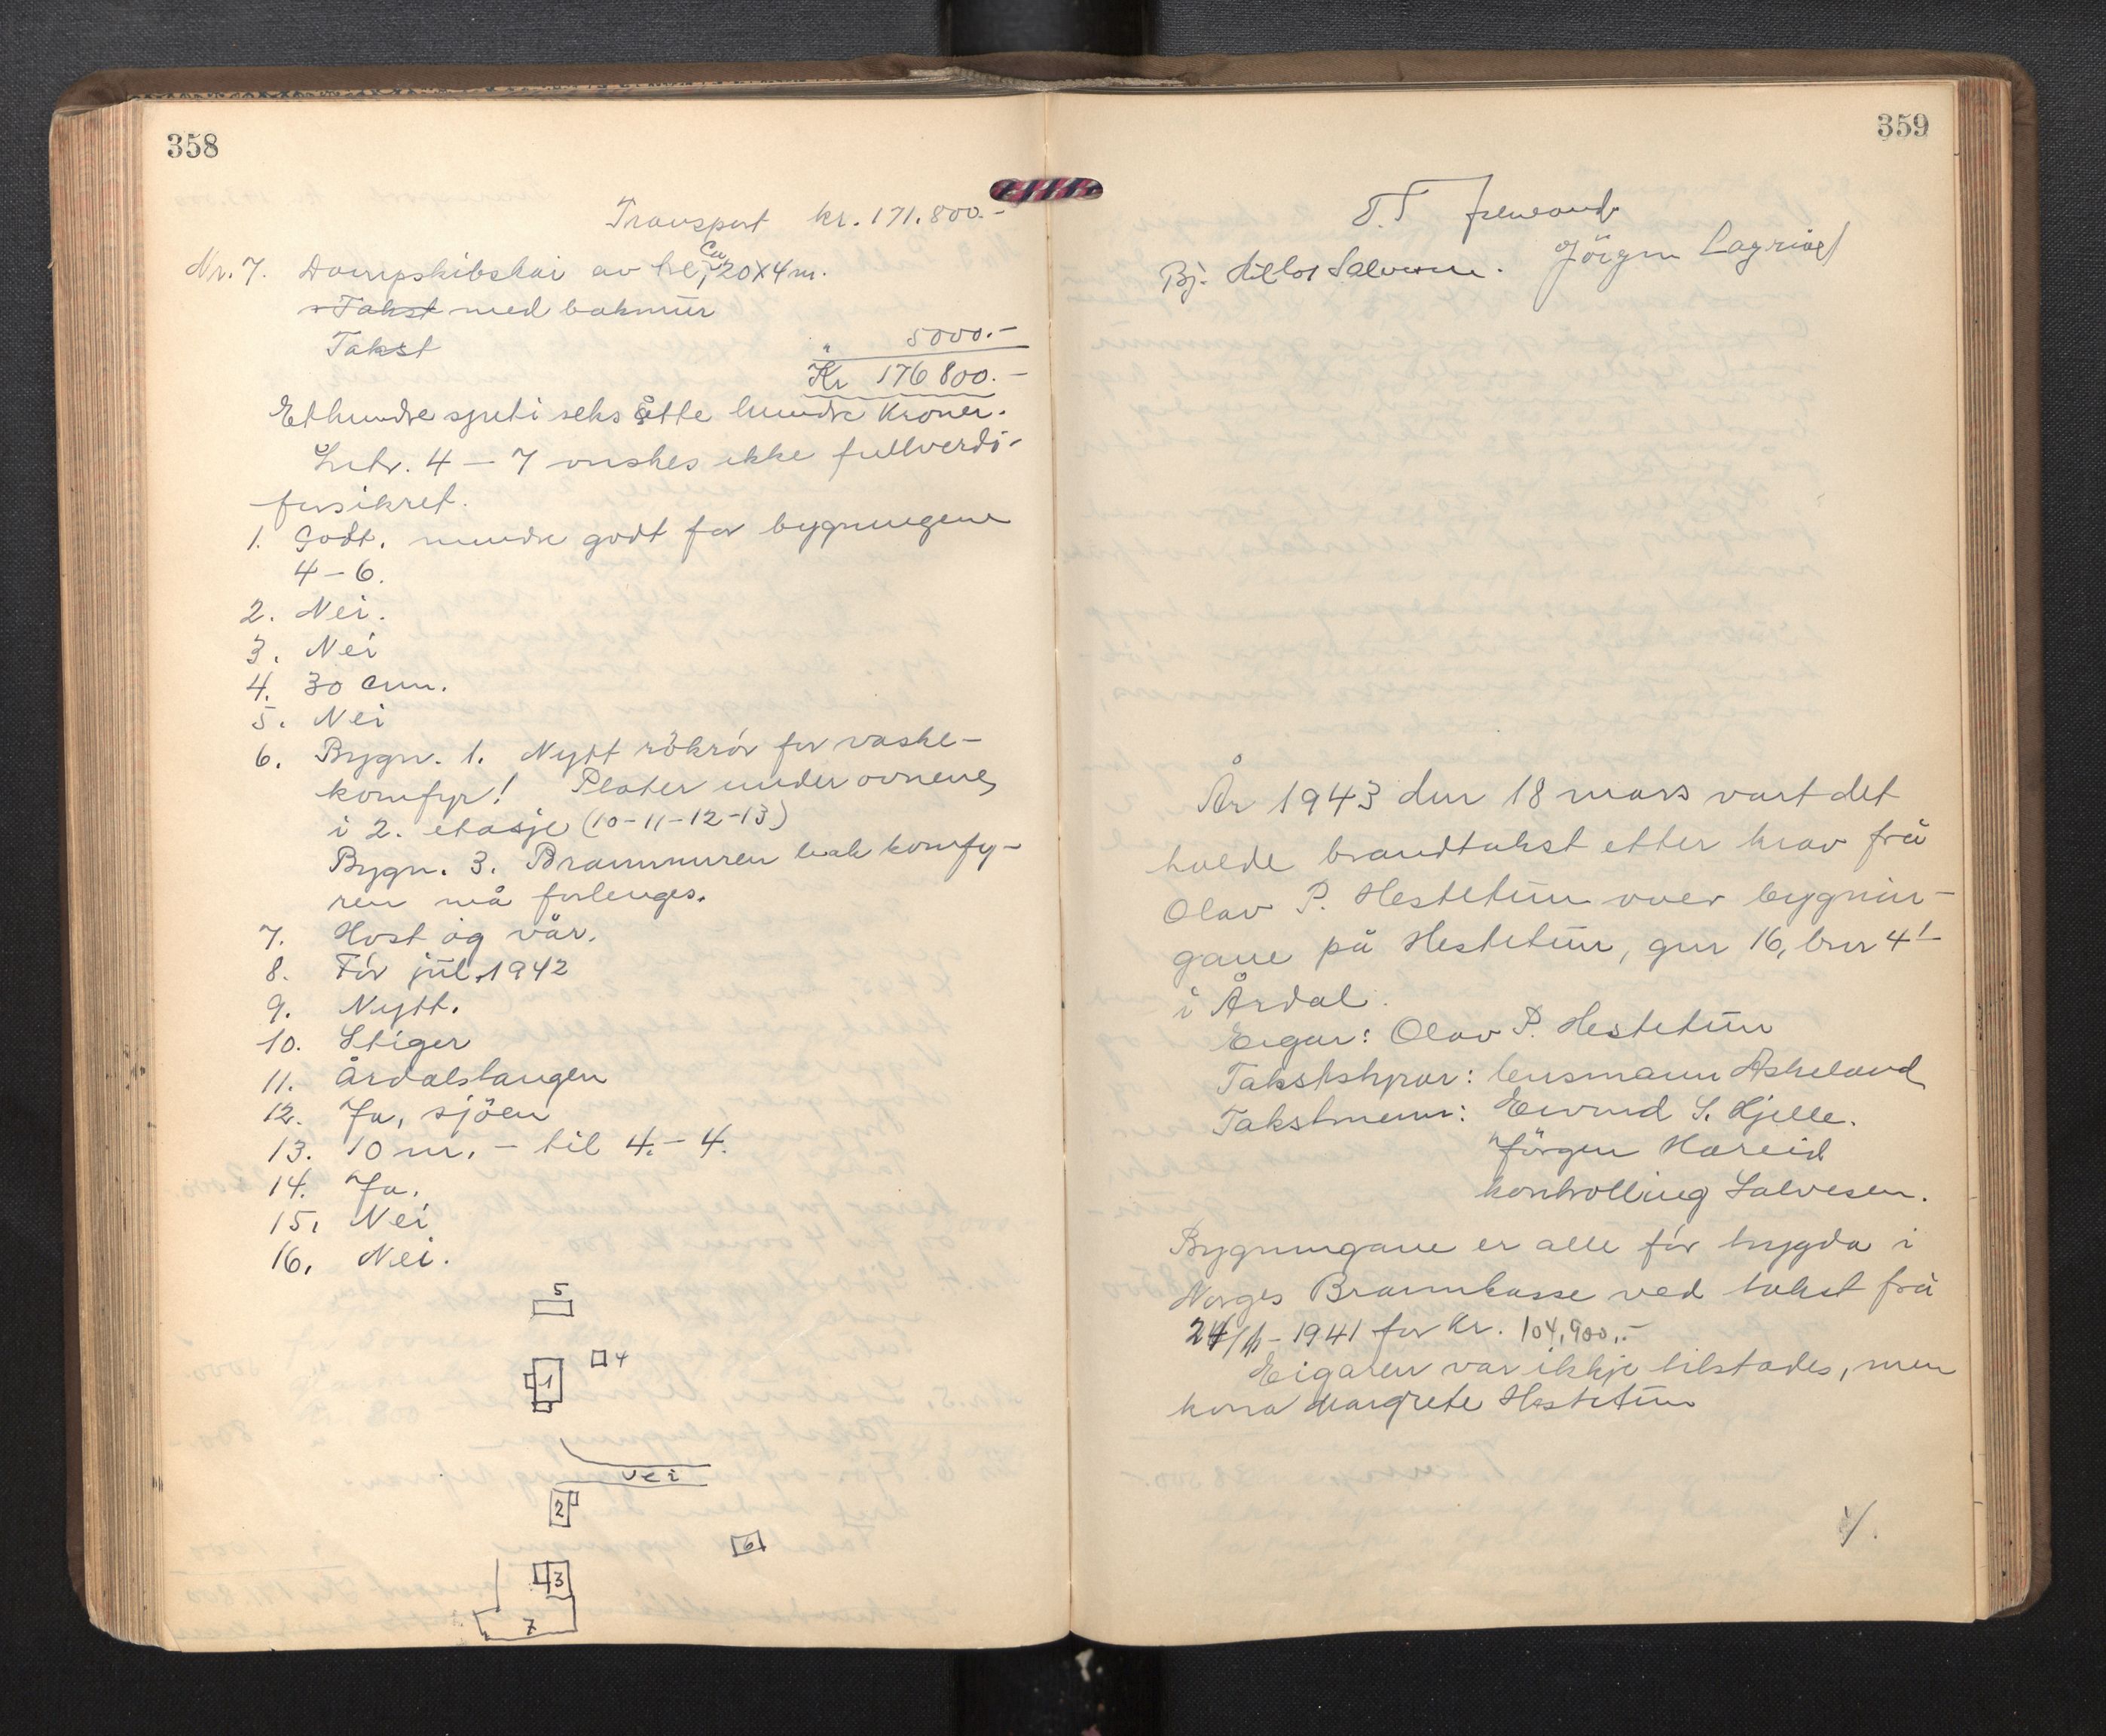 358
Transport kr. 171.800.-
Nr. 7. Dampskibskai av tre, Ca 20x4 m.
Takst med bakmur
Takst " 5000.-
Kr 176 800.-
Ethundre sytti seks åtte hundre Kroner.
Litr. 4 - 7 onskes ikke fullverdi-
forsikret.
1. Godt. mindre godt for bygningene
4-6.
2. Nei.
3. Nei
4. 30 cm.
5. Nei
6. Bygn. 1. Nytt rökrör for vaske-
komfyr! Plater under ovnene,
i 2. etasje (10-11-12-13)
Bygn. 3. Brannmuren bak komfy-
ren må forlenges.
7. Host og vår.
8. För jul 1942
9. Nytt.
10. Stiger
11. Årdalstangen
12. Ja, sjöen
13. 10 m. - til 4. - 4.
14. Ja.
15. Nei
16. Nei.
5
4
1
Vei
2
6
3
7
359
Jörgen
Bj. Salvesen.
År 1943 den 18 mars vart det
halde brandtakst etter krav frå
Olav P. Hestetun over bygnin-
gane på Hestetun, gnr 16, bnr 4
i Årdal.
Eigar: Olav P. Hestetun
Takststyrar: lensmann Askeland
Takstmenn: Eivind S. Hjelle.
Jörgen Hareid
kontrolling Salvesen.
Bygningane er alle för trygda i
Norges Brannkasse ved takst frå
24/ - 1941 for Kr. 104,900.-
Eigaren var ikkje tilstades, men
kona Margrete Hestetun